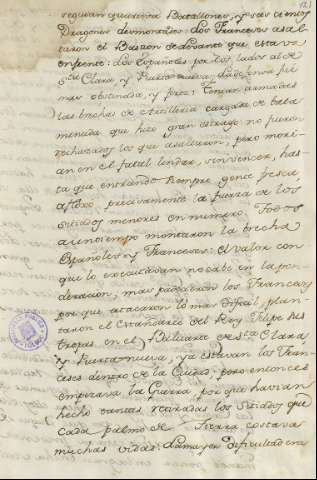 seguían quarenta Batallones, y seis cientos
Dragones desmontados. Los Franceses asal-
taron el Bastion de Levante que estava
enfrente: los Españoles por los lados al de
Sta Clara, y Puerta nueva; la defensa fue
mas obstinada, y feroz: Tenian armadas
las brechas de Artilleria cargada de bala
menuda que hizo gran estrago no fueron
rechazados los que asaltaron, pero mori-
an en el fatal lindar, sin vencer, has-
ta que entrando siempre gente fresca
afloxó precisamente la fuerza de los
sitiados menores en numero. Todos
a un tiempo montaron la brecha
Españoles, y Franceses: el valor con
que lo executaban no cabe en la pon-
deracion; mas padecieron los Franceses
por que atacaron lo mas dificil, plan-
taron el Estandarte del Rey Felipe sus
tropas en el Baluarte de Sta Clara
y Puerta nueva, ya estavan los Fran-
ceses dentro de la Ciudad; pero entonces
empezava la Guerra, por que havian
hecho tantas retiradas los Sitiados que
cada palmo de Tierra costava
muchas vidas. La mayor dificultad era